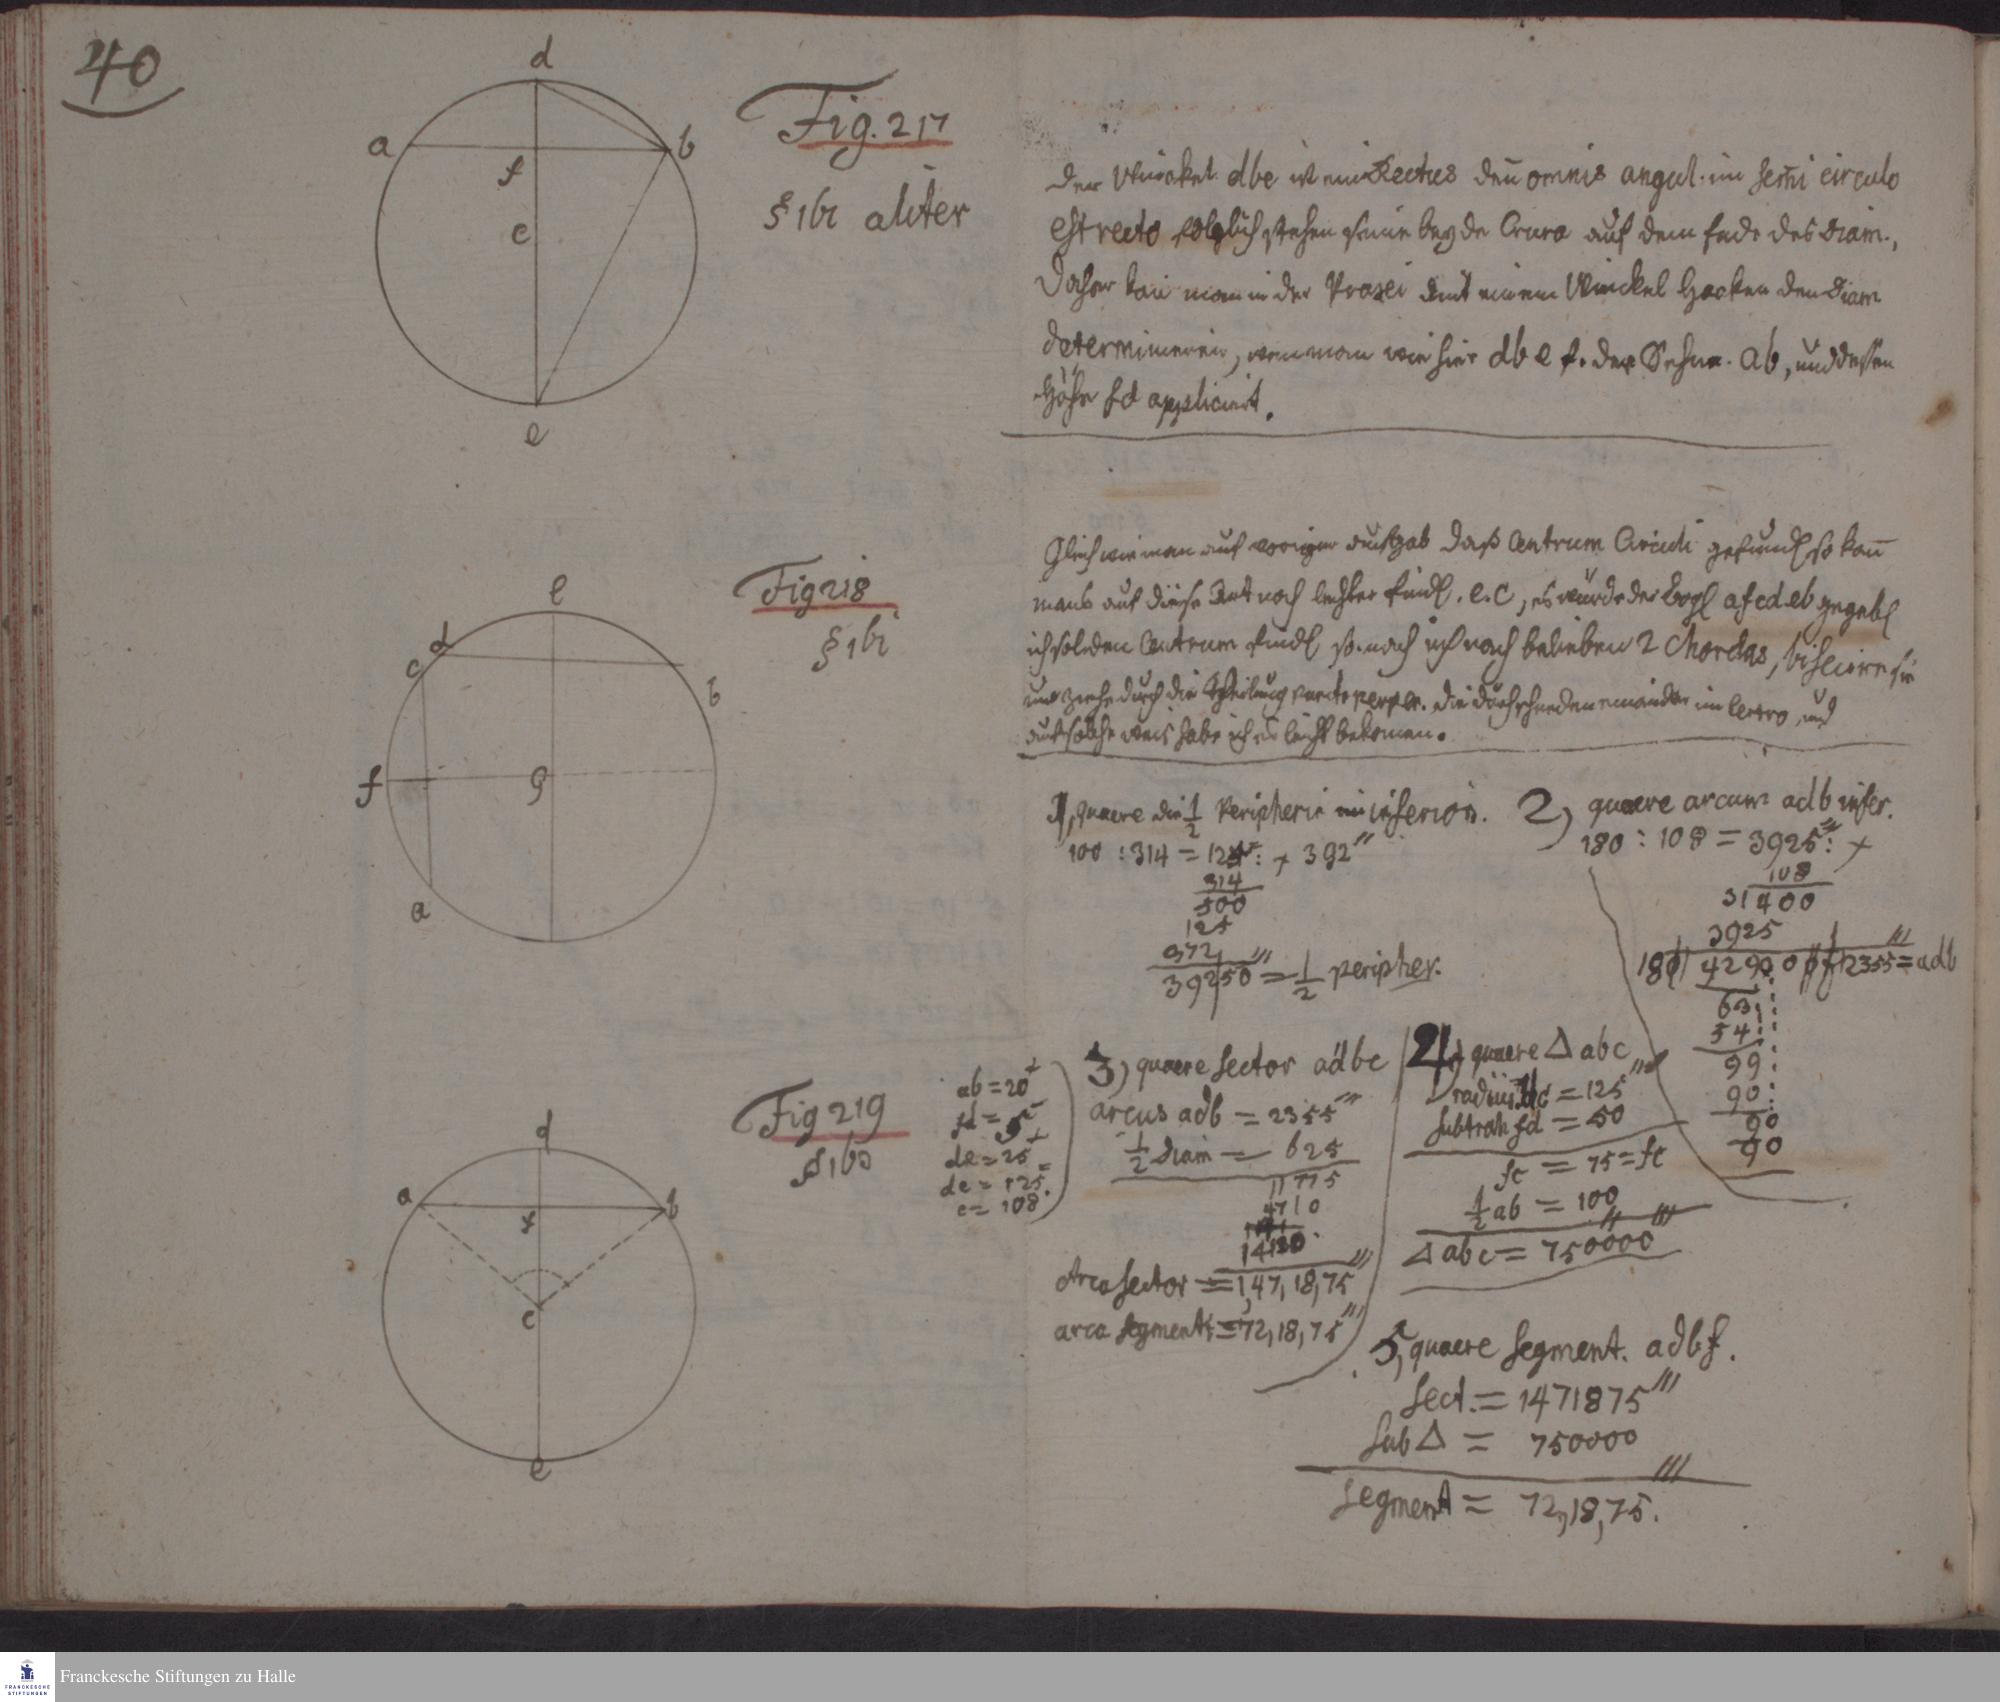 40
d
a
b
f
c
e
Fig. 217
§ 161 aliter
Der Winckel dbe ist ein Rectus den omnis angul. im semi circulo
est recto folglich stehen seine beyde Crura auf dem Ende des Diam.,
Daher kan man in der Praxei mit einem Winckel Hacken den Diam
determiniren, wenn man wie hier dbe f. der Sehne. ab, und dessen
Höhe fd appliciert.
Fig 218
§ 161
e
d
c
b
f
g
a
Gleich wie man auf voriger aufgab daß Centrum Circuli gefund so kan
mans auf diese Art noch leichter find. e.c, es würde der bogl afcdeb gegebl
ich sol den Centrum findl so mach ich nach belieben 2 Chordas, bisecire sie
und ziehe durch die theilung puncte perpen. die durchschneiden einander im Centro und
auf solche weis habe ich es leicht bekomen.
1, quaere die 1/2 Peripherie in inferiori.
100 : 314 = 125 : x 392''
314
500
125
372
39250''' = 1/2 peripher.
2, quaere arcum adb infer.
180 : 108 = 3925''' : x
108
31400
3925
180 | 423900 | 2355''' = adb
63
54
99
90
90
90
Fig 219
§ 160
d
a
b
f
c
e
ab = 20
fd = 5
de = 25
dc = 125
c = 108
3, quaere sector adbc
arcus adb = 2355'''
1/2 Diam = 625
11775
4710
14130
Area sector = 1,47,18,75'''
area segment = 72,18,75'''
4, quaere Δ abc
radius dc = 125'''
subtrah fd = 50
fc = 75 = fc
1/2 ab = 100
Δ abc = 750000'''
5, quaere segment. adbf.
Sect. = 1471875'''
Sub Δ = 750000
segment = 72,18,75.'''
FRANCKESCHE
STIFTUNGEN
Franckesche Stiftungen zu Halle